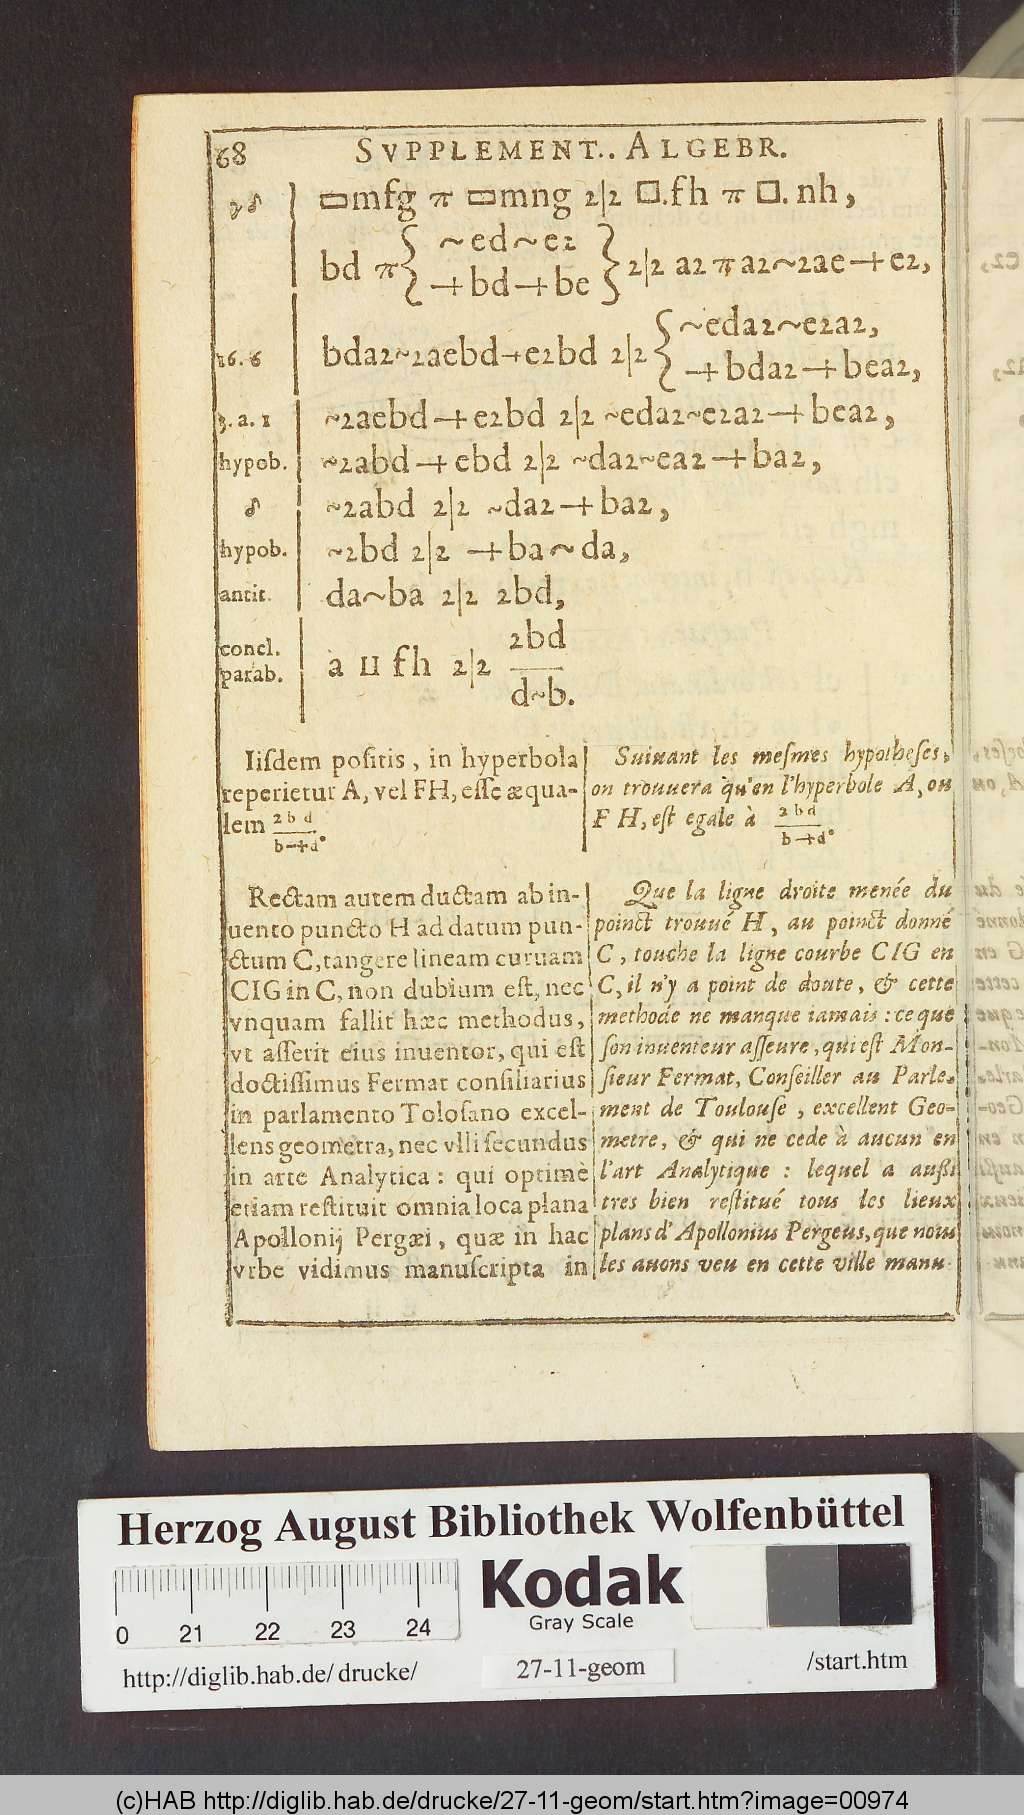 68 SVPPLEMENT.. ALGEBR.
▭mfg π ▭mng 2|2 □.fh π □. nh,
~ed~e2
bd π{ }2|2 a2 π a2~2ae+e2,
+bd+be
~eda2~e2a2,
16. 6 bda2~2aebd+e2bd 2|2{
+bda2+bea2,
3. a. 1 ~2aebd+e2bd 2|2 ~eda2~e2a2+bea2,
hypob. ~2abd+ebd 2|2 ~da2~ea2+ba2,
~2abd 2|2 ~da2+ba2,
hypob. ~2bd 2|2 +ba~da,
antit. da~ba 2|2 2bd,
concl.
parab.
2bd
a II fh 2|2
d~b.
Iiſdem poſitis, in hyperbola
reperietur A, vel FH, eſſe æqua-
lem 2bd
b+d.
Rectam autem ductam ab in-
uento puncto H ad datum pun-
ctum C, tangere lineam curuam
CIG in C, non dubium eſt, nec
vnquam fallit hæc methodus,
vt aſſerit eius inuentor, qui eſt
doctiſſimus Fermat conſiliarius
in parlamento Toloſano excel-
lens geometra, nec vlli ſecundus
in arte Analytica: qui optimè
etiam reſtituit omnia loca plana
Apollonij Pergæi, quæ in hac
vrbe vidimus manuſcripta in
Suiuant les meſmes hypotheſes,
on trouuera qu'en l'hyperbole A, ou
F H, eſt egale à 2bd
b+d.
Que la ligne droite menée du
poinct trouué H, au poinct donné
C, touche la ligne courbe CIG en
C, il n'y a point de doute, & cette
methode ne manque iamais: ce que
ſon inuenteur aſſeure, qui eſt Mon-
ſieur Fermat, Conſeiller au Parle-
ment de Toulouſe, excellent Geo-
metre, & qui ne cede à aucun en
l'art Analytique: lequel a außi
tres bien reſtitué tous les lieux
plans d'Apollonius Pergeus, que nous
les auons veu en cette ville manu
Herzog August Bibliothek Wolfenbüttel
Kodak
Gray Scale
0 21 22 23 24
http://diglib.hab.de/drucke/ 27-11-geom /start.htm
(c)HAB http://diglib.hab.de/drucke/27-11-geom/start.htm?image=00974